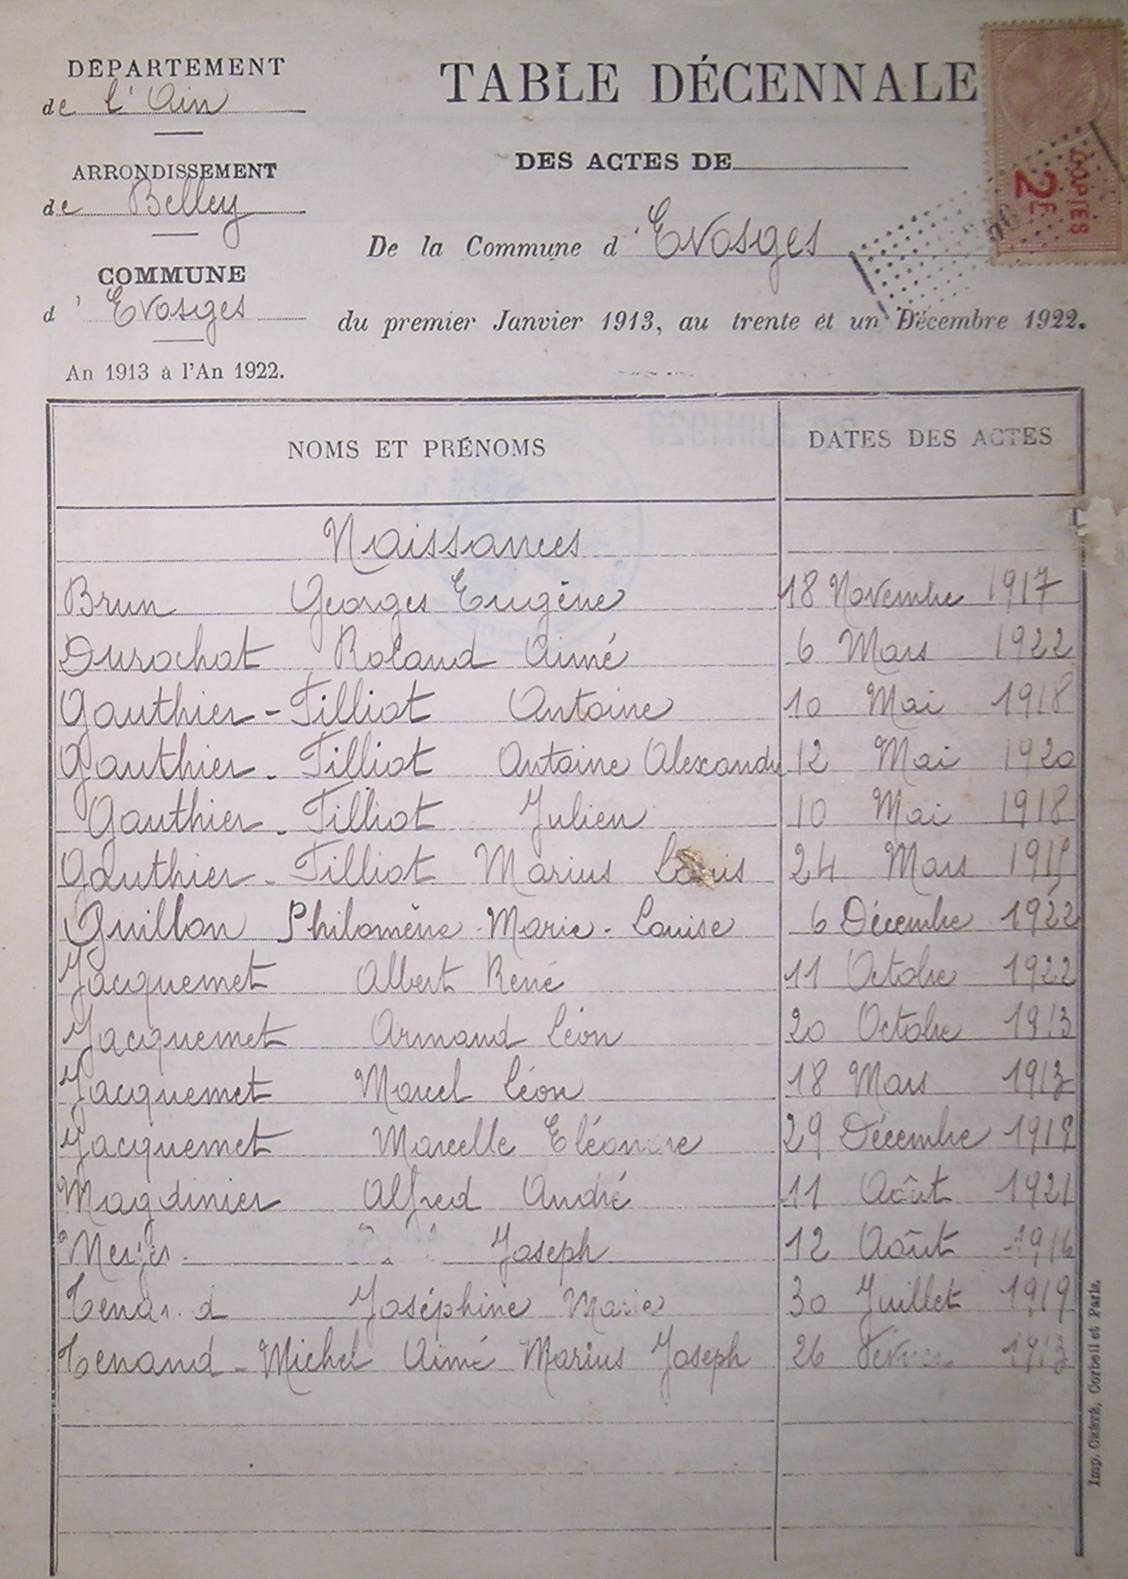 DÉPARTEMENT
de l'Ain
ARRONDISSEMENT
de Belley
COMMUNE
d'Evosges
An 1913 à l'An 1922.
TABLE DÉCENNALE
DES ACTES DE
De la Commune d'Evosges
du premier Janvier 1913, au trente et un Décembre 1922.
COPIES
2F
NOMS ET PRÉNOMS DATES DES ACTES
Naissances
Brun Georges Eugène 18 Novembre 1917
Durochat Roland Aimé 6 Mars 1922
Gauthier-Tilliot Antoine 10 Mai 1918
Gauthier-Tilliot Antoine Alexandre 12 Mai 1920
Gauthier-Tilliot Julien 10 Mai 1918
Gauthier-Tilliot Marius Louis 24 Mars
Guillon Philomène-Marie-Louise 6 Décembre 1922
Jacquemet Albert René 11 Octobre 1922
Jacquemet Armand Léon 20 Octobre 1913
Jacquemet Marcel Léon 18 Mars 1913
Jacquemet Marcelle Eléonore 29 Décembre
Magdinier Alfred André 11 Août 1921
Joseph 12 Août 1916
Tenand Joséphine Marie 30 Juillet 1919
Tenand-Michel Aimé Marius Joseph 26 Février 1913
Imp. Corbeil et Paris.